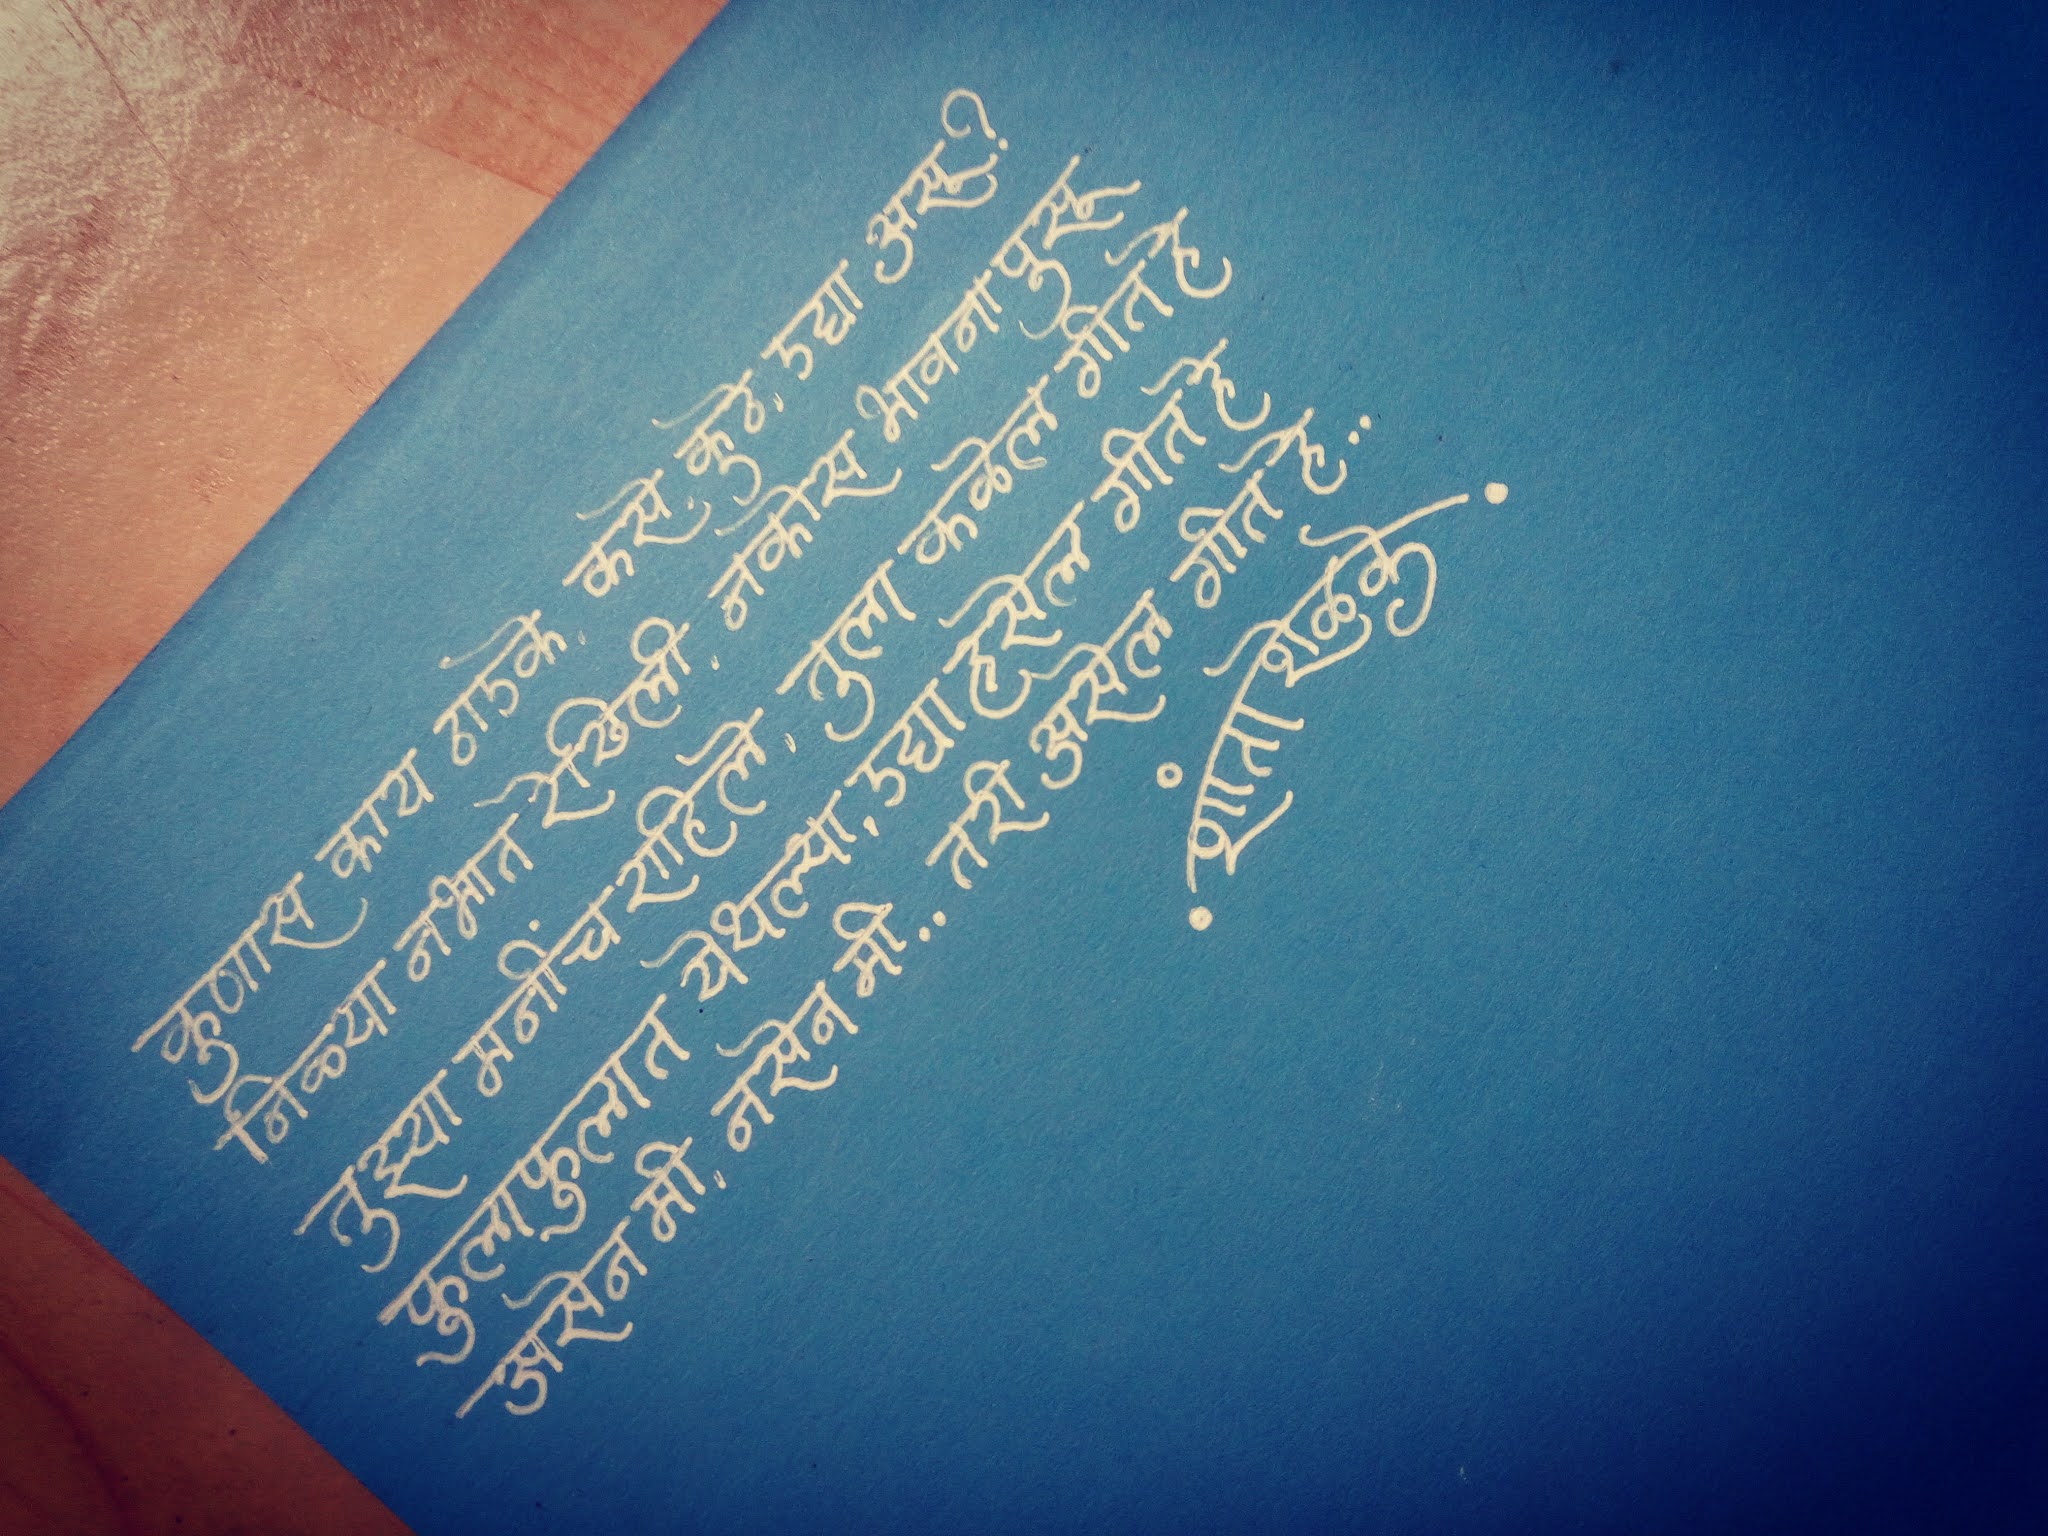 कुणास काय ठाउके, कसे, कुठे, उद्या असू?
निळ्या नभात रेखिली, नकोस भावना पुसू
तुझ्या मनीच राहिले, तुला कळेल गीत हे
फुलाफुलात येथल्या, उद्या हसेल गीत हे
असेन मी, नसेन मी.. तरी असेल गीत हे..
शांता शेळके